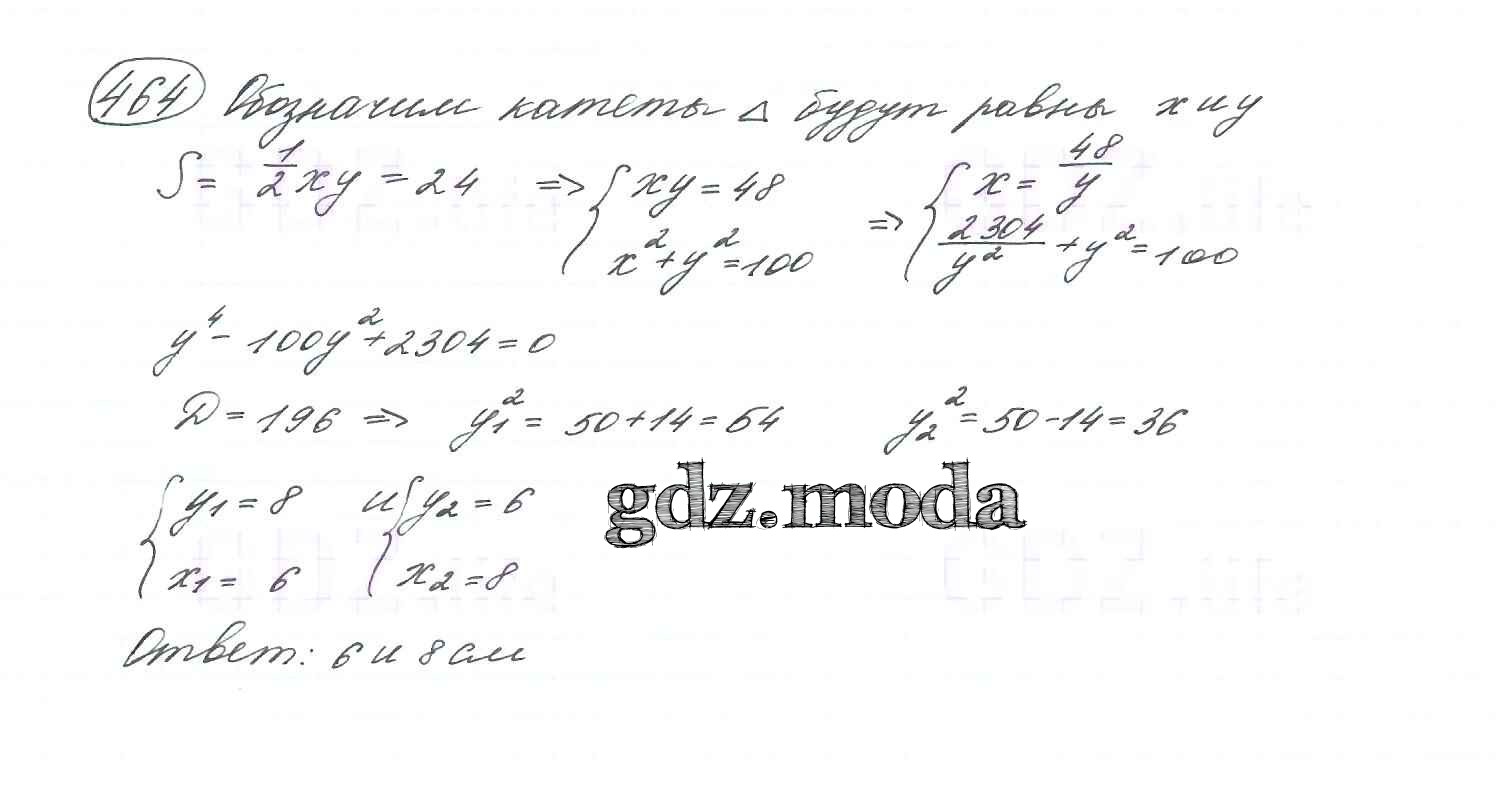 464 Обозначим катеты △ будут равны x и y
S = 1/2 xy = 24 => { xy = 48 x² + y² = 100 => { x = 48/y 2304/y² + y² = 100
y⁴ - 100y² + 2304 = 0
D = 196 => y₁² = 50 + 14 = 64 y₂² = 50 - 14 = 36
{ y₁ = 8 x₁ = 6 и { y₂ = 6 x₂ = 8
gdz.moda
Ответ: 6 и 8 см